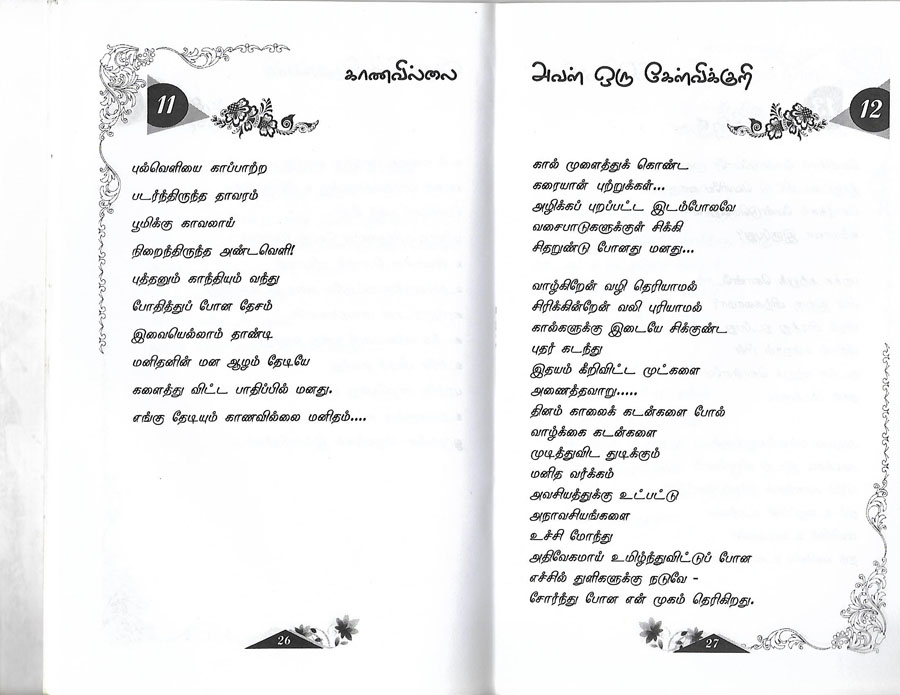 காணவில்லை
11
புல்வெளியை காப்பாற்ற
படர்ந்திருந்த தாவரம்
பூமிக்கு காவலாய்
நிறைந்திருந்த அண்டவெளி!
புத்தனும் காந்தியும் வந்து
போதித்துப் போன தேசம்
இவையெல்லாம் தாண்டி
மனிதனின் மன ஆழம் தேடியே
களைத்து விட்ட பாதிப்பில் மனது.
எங்கு தேடியும் காணவில்லை மனிதம்....
26
அவள் ஒரு கேள்விக்குறி
12
கால் முளைத்துக் கொண்ட
கரையான் புற்றுக்கள்...
அழிக்கப் புறப்பட்ட இடம்போலவே
வசைபாடுகளுக்குள் சிக்கி
சிதறுண்டு போனது மனது...
வாழ்கிறேன் வழி தெரியாமல்
சிரிக்கின்றேன் வலி புரியாமல்
கால்களுக்கு இடையே சிக்குண்ட
புதர் கடந்து
இதயம் கீறிவிட்ட முட்களை
அணைத்தவாறு.....
தினம் காலைக் கடன்களை போல்
வாழ்க்கை கடன்களை
முடித்துவிட துடிக்கும்
மனித வர்க்கம்
அவசியத்துக்கு உட்பட்டு
அநாவசியங்களை
உச்சி மோந்து
அதிவேகமாய் உமிழ்ந்துவிட்டுப் போன
எச்சில் துளிகளுக்கு நடுவே -
சோர்ந்து போன என் முகம் தெரிகிறது.
27